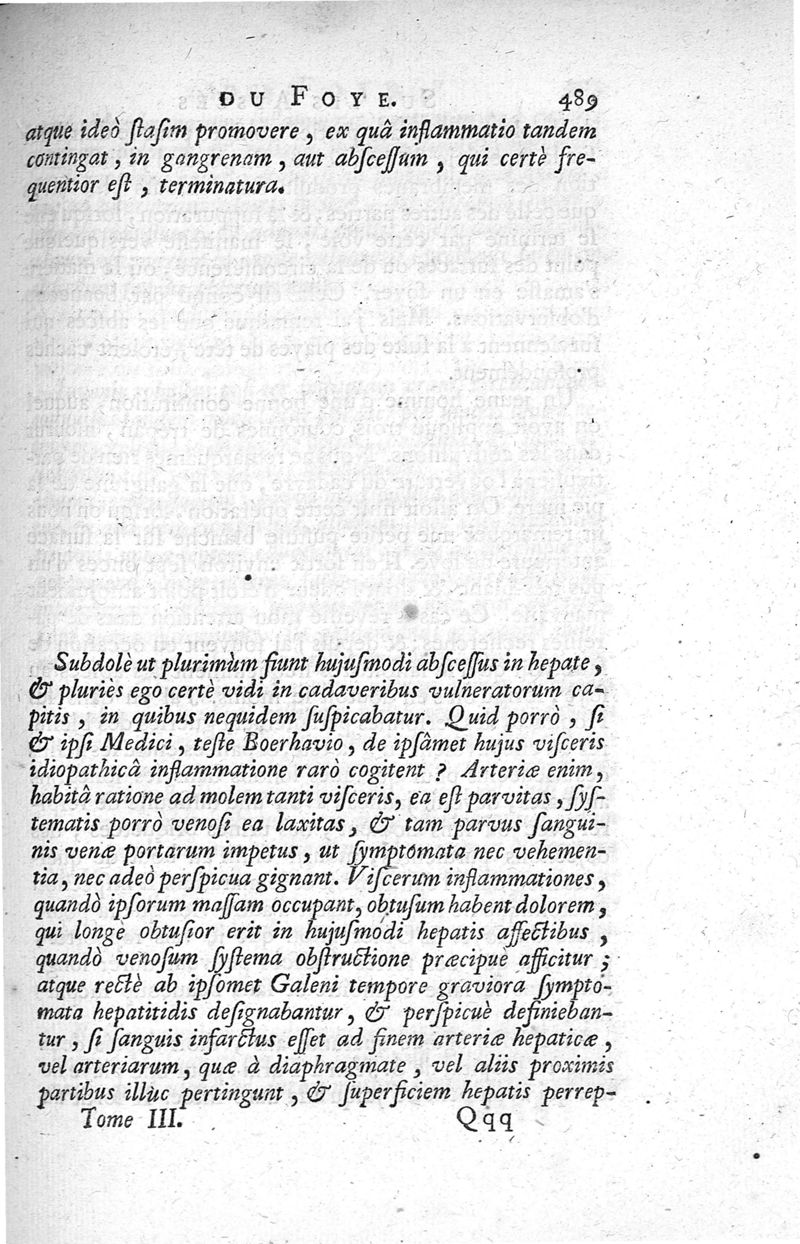 DU FOYE. 489
atque ideò ſtaſim promovere, ex quâ inflammatio tandem
contingat, in gangrenam, aut abſceſſum, qui certè fre-
quentior eſt, terminatura.
Subdolè ut plurimùm fiunt hujuſmodi abſceſſus in hepate,
& pluriès ego certè vidi in cadaveribus vulneratorum ca-
pitis, in quibus nequidem ſuſpicabatur. Quid porrò, ſi
& ipſi Medici, teſte Boerhavio, de ipſâmet hujus viſceris
idiopathicâ inflammatione rarò cogitent ? Arteriæ enim,
habitâ ratione ad molem tanti viſceris, ea eſt parvitas, ſyſ-
tematis porrò venoſi ea laxitas, & tam parvus ſangui-
nis venæ portarum impetus, ut ſymptomata nec vehemen-
tia, nec adeò perſpicua gignant. Viſcerum inflammationes,
quandò ipſorum maſſam occupant, obtuſum habent dolorem,
qui longè obtuſior erit in hujuſmodi hepatis affectibus,
quandò venoſum ſyſtema obſtructione præcipuè afficitur;
atque rectè ab ipſomet Galeni tempore graviora ſympto-
mata hepatitidis deſignabantur, & perſpicuè definieban-
tur, ſi ſanguis infarctus eſſet ad finem arteriæ hepaticæ,
vel arteriarum, quæ à diaphragmate, vel aliis proximis
partibus illùc pertingunt, & ſuperficiem hepatis perrep-
Tome III. Qqq